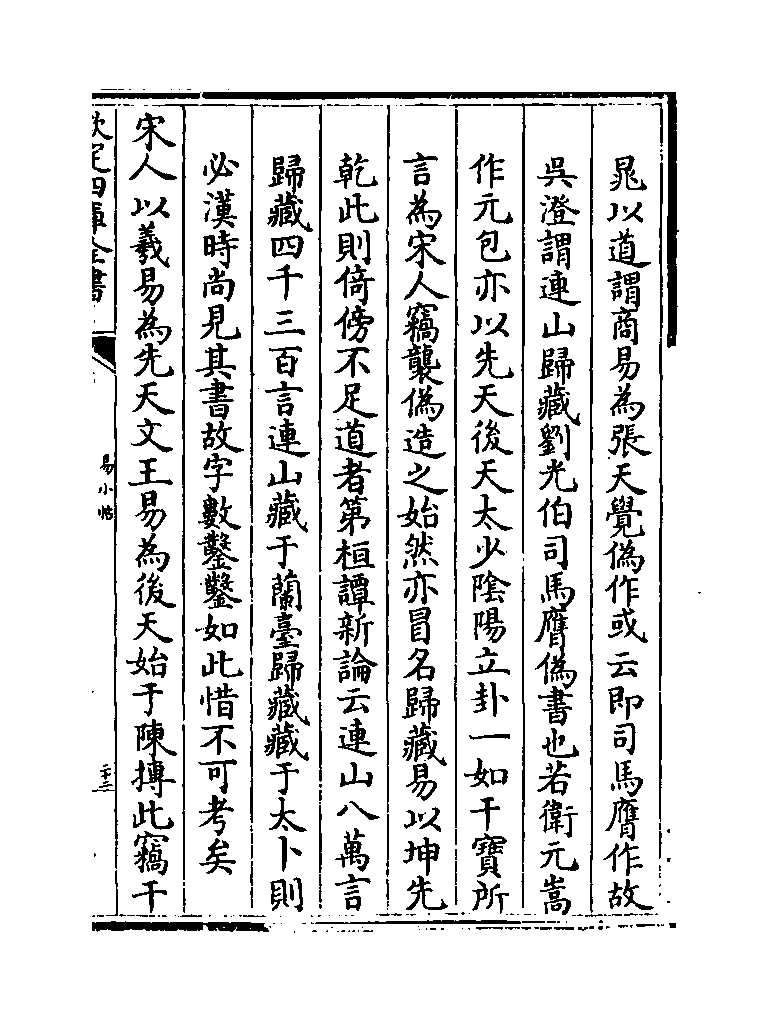 晁以道謂商易為張天覺偽作或云即司馬膺作故
吳澄謂連山歸藏劉光伯司馬膺偽書也若衛元嵩
作元包亦以先天後天太少陰陽立卦一如干寶所
言為宋人竊襲偽造之始然亦冒名歸藏易以坤先
乾此則倚傍不足道者第桓譚新論云連山八萬言
歸藏四千三百言連山藏于蘭臺歸藏藏于太卜則
必漢時尚見其書故字數鑿鑿如此惜不可考矣
宋人以羲易為先天文王易為後天始于陳摶此竊干
欽定四庫全書
易小帖
二十三